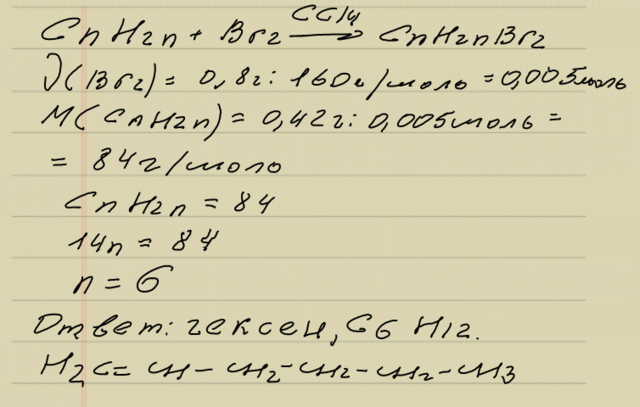 CnH2n + Br2 CCl4 → CnH2nBr2
ν(Br2) = 0,8г : 160г/моль = 0,005моль
M(CnH2n) = 0,42г : 0,005моль =
= 84г/моло
CnH2n = 84
14n = 84
n = 6
Ответ: гексен, C6H12.
H2C = CH – CH2 – CH2 – CH2 – CH3